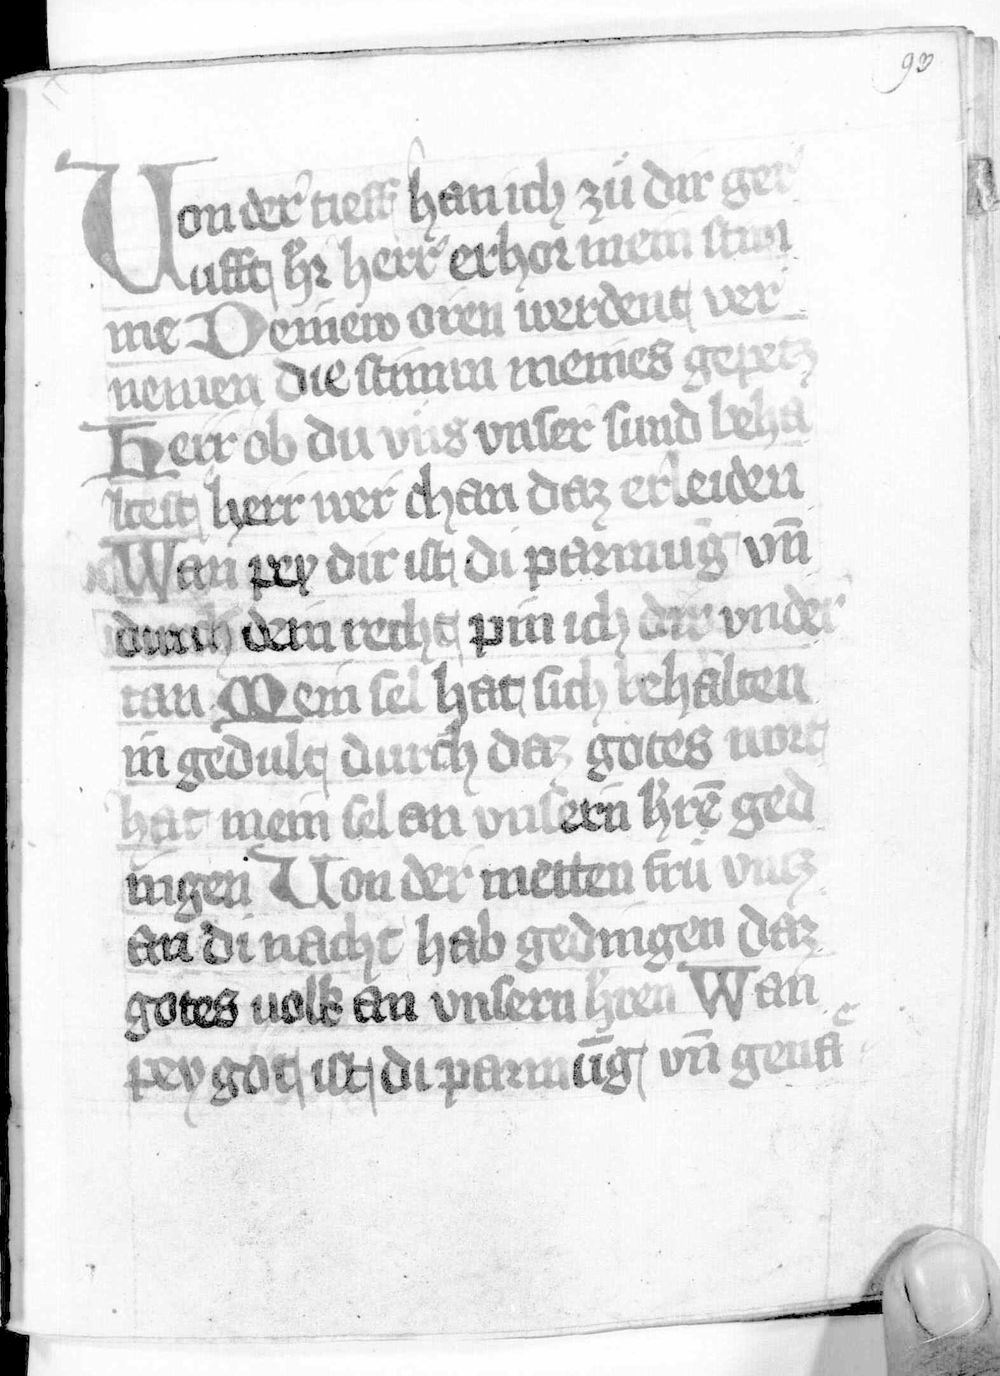 93
Von der tieff han ich zů dir ger
ufft hr̄ herr erhor mein stim
me Deinew oren werdent ver
nemen die stimm meines gepetz
Herr ob du vns vnser sund beha
ltest herr wer chan daz erleiden
Wan pey dir ist di parmūg vn̄
durch dein recht pin ich dir vnder
tan Mein sel hat sich behalten
in gedult durch daz gotes wort
hat mein sel an vnsern hr̄e ged
ingen Von der metten frů vntz
an di nacht hab gedingen daz
gotes volk an vnsern hr̄en Wan
pey got ist di parmūg vn̄ gena